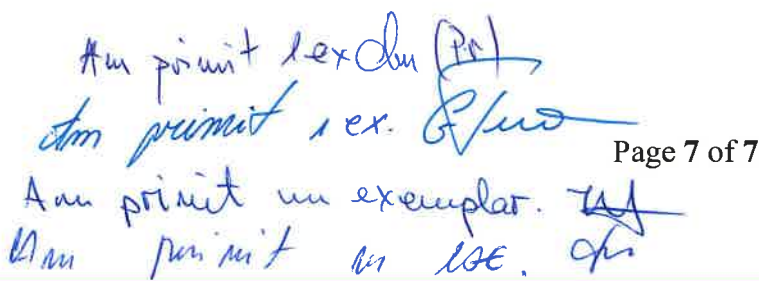 Am primit 1 ex
Am primit 1 ex.
Page 7 of 7
Am primit un exemplar.
Am primit un